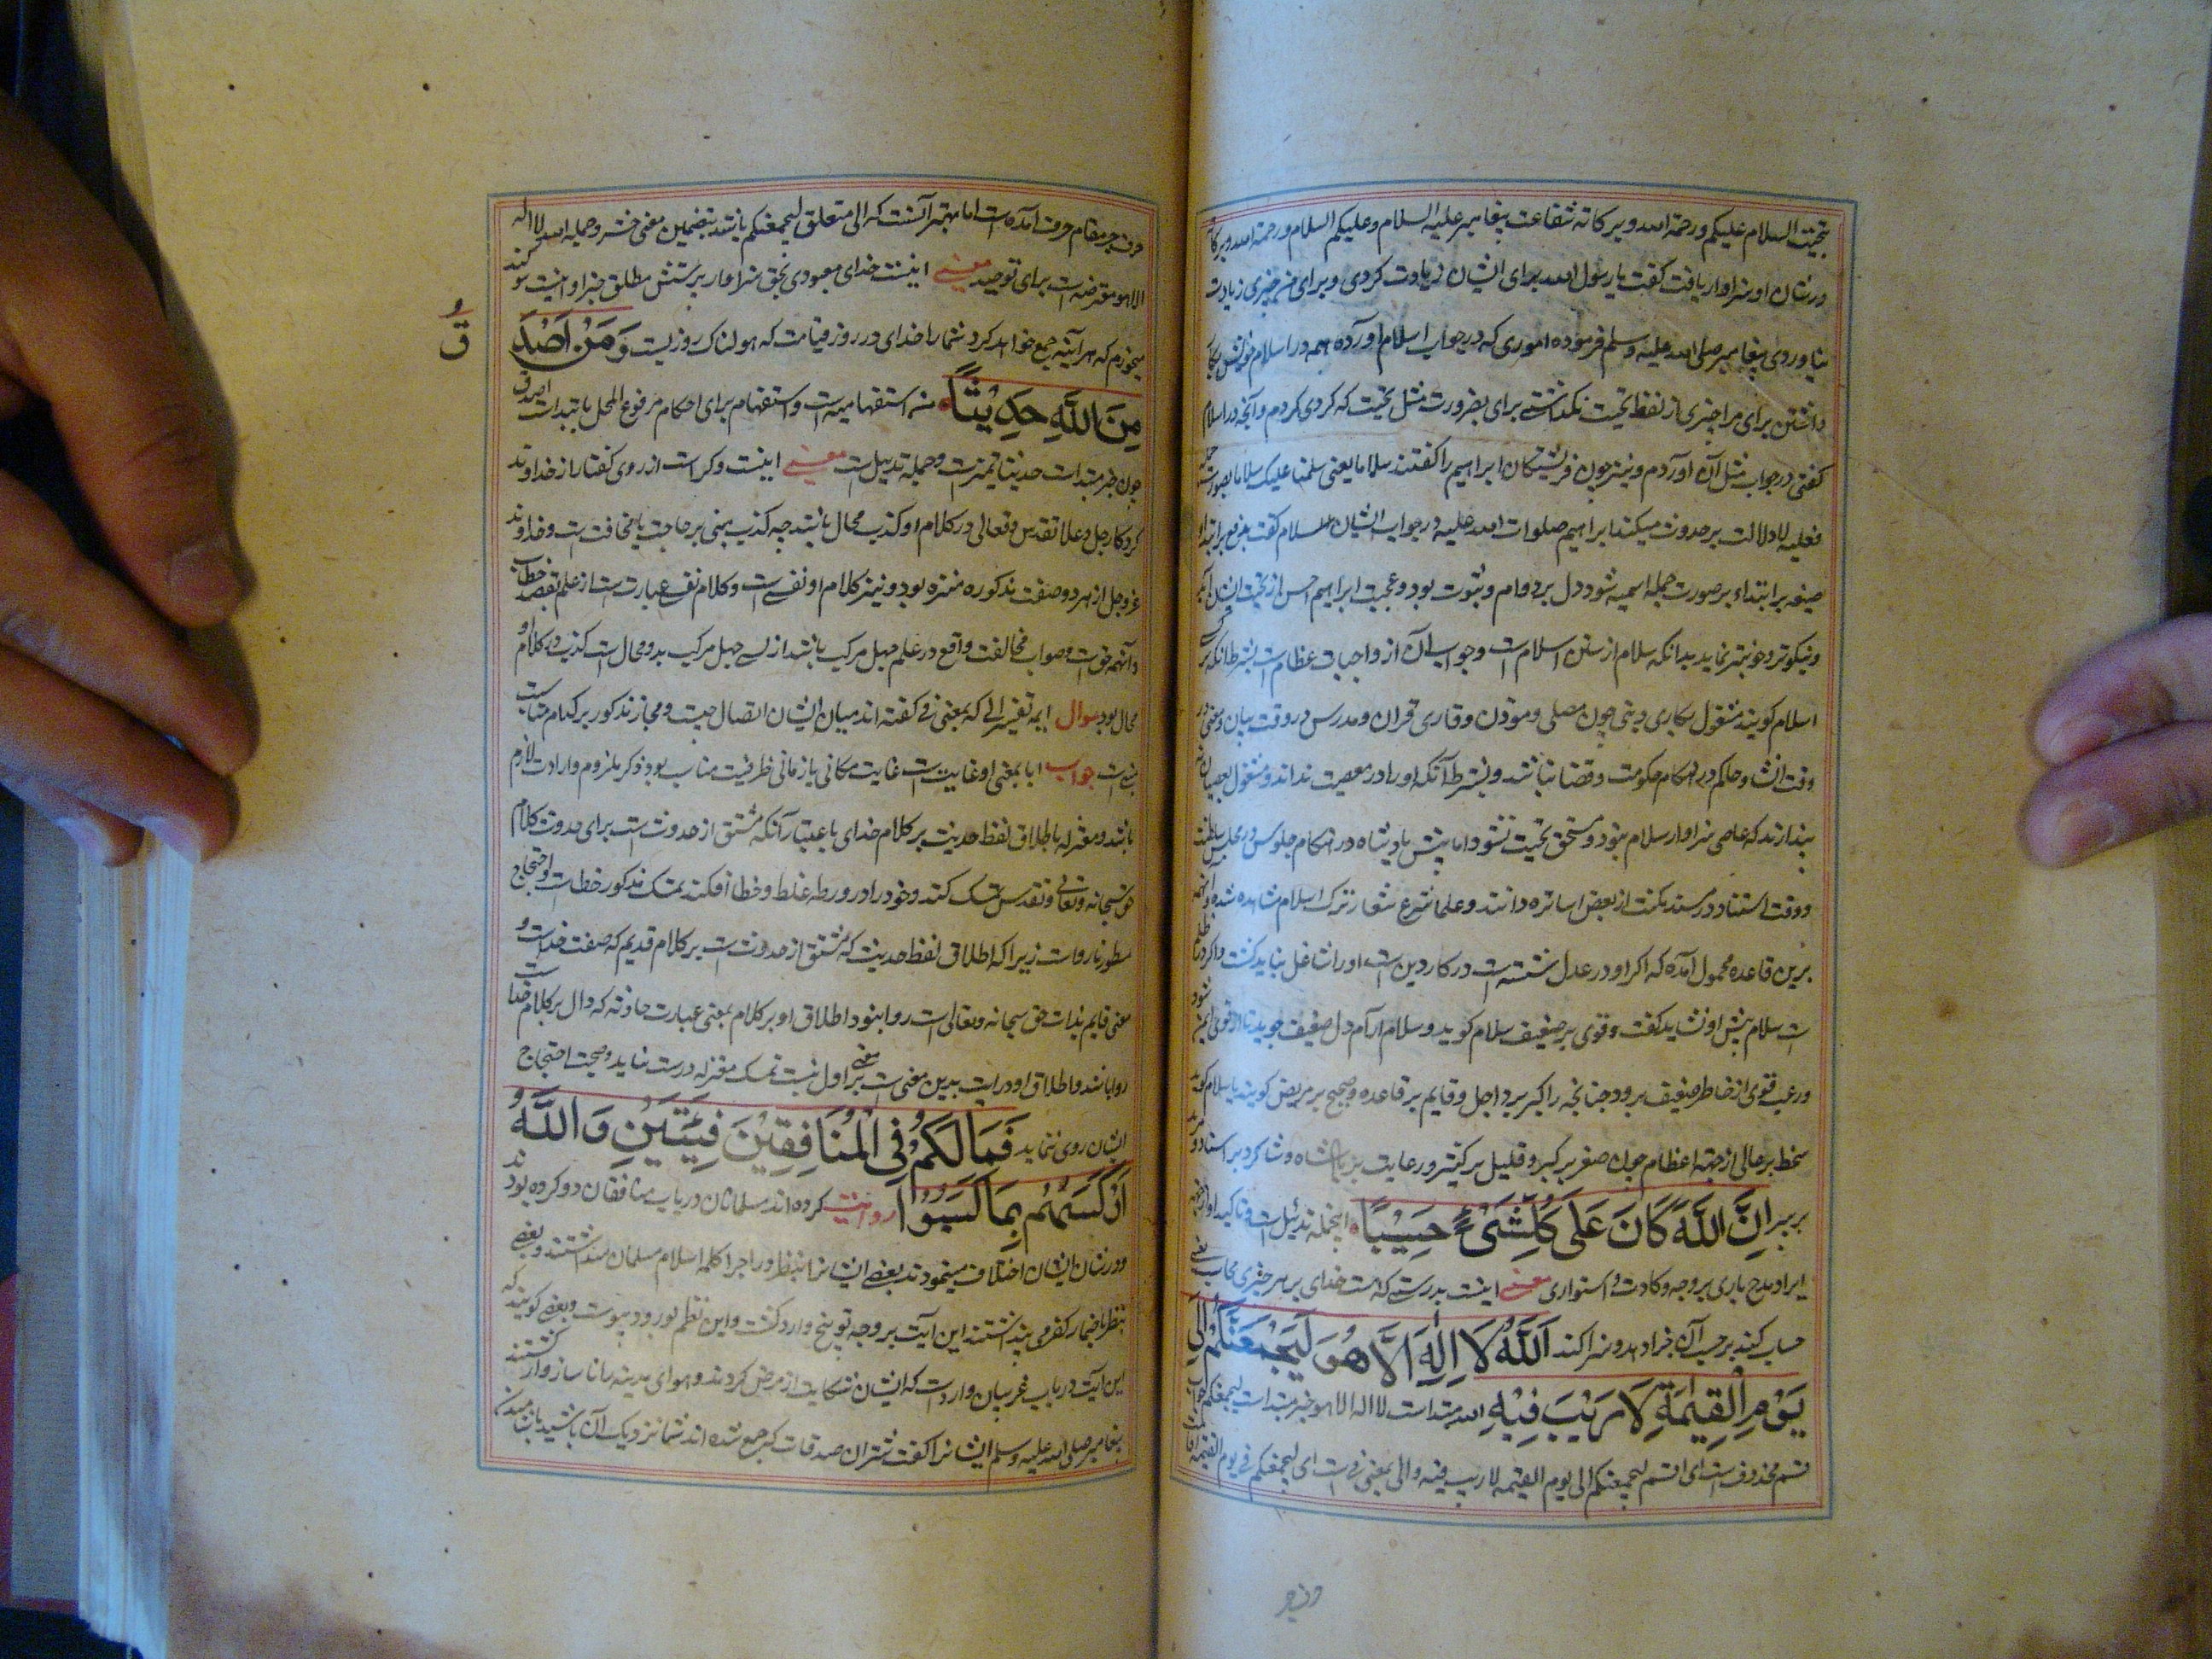 بتحیت السلام علیکم ورحمة الله وبرکاته شفاعت پیغامبر علیه السلام وعلیکم السلام ورحمة الله وبرکاته
درشان او سزاوار یافت کفت یا رسول الله برای ایشان زیادت کردی وبرای من چیزی زیادت
نیاوردی پیغامبر صلی الله علیه وسلم فرموده اموری که در جواب اسلام آورده همه در اسلام خویش
داشتن برای مرا چیزی از لفظ تحیت نکذاشتی برای بضرورت مثل تحیت که کردی کردم وآنچه در اسلام
کفتی در جواب مثل آن آوردم ونیز چون فریشتکان ابراهیم را کفتند سلاما یعنی سلمنا علیک سلاما بصورت
فعلیه لا دلالت بر حدوث میکند ابراهیم صلوات الله علیه در جواب ایشان سلام کفت برفع بر ابتدا
صیغه بر ابتداء بر صورت جمله اسمیه شود دال بر دوام وثبوت بود وتحیت ابراهیم احسن از تحیت ایشان
ونیکوتر وخوبتر نماید بدانکه سلام از سنن اسلام است وجواب آن از واجبات عظام است بشرط آنکه
اسلام کویند مشغول بکاری دینی چون مصلی وموذن وقاری قران ومدرس در وقت بیان ومفتی در
وقت افشا وحاکم در هنکام حکومت وقضا نباشد وبشرط آنکه او را در معصیت نداند ومشغول بعصیان
نپندارند که عاصی سزاوار سلام نبود ومستحق تحیت نشود اما پیش پادشاه در هنکام جلوس در مجلس سلطنت
ووقت استناد در مسند مکنت از بعض اساتره دانند وعلماء شرع شعار ترک اسلام مشاهده شده
برین قاعده محمول آمده که اکر او در عدل نشسته است در کار دین است او را شاغل نباید کشت
است سلام پیش او نشاید کفت وقوی بر ضعیف سلام کوید وسلام آرام دل ضعیف جوید تا از قوی ایمن شود
ورعب قوی از خاطر ضعیف برود چنانچه راکب بر راجل وقایم بر قاعده وصحیح بر مریض کویند یا سلام کوید
سخط بر حالی از جهة اعظام چون صغیر بر کبیر وقلیل بر کثیر ورعایت بر پادشاه وشاکرد بر استاد
بر پیر اِنَّ اللّٰهَ كَانَ عَلٰى كُلِّ شَيْءٍ حَسِيْبًا اینجمله تذییل است وتاکید
ایراد مدح باری بر وجه وکادت واستواری معنی اینست بدرستی که هست خدای بر هر چیزی محاسب
حساب کند بر حسب آن جزا دهد وسزا کند اَللّٰهُ لَا اِلٰهَ اِلَّا هُوَ لَيَجْمَعَنَّكُمْ اِلٰى
يَوْمِ الْقِيٰمَةِ لَا رَيْبَ فِيْهِ الله مبتداست لا اله الا هو خبر مبتداست لیجمعنکم جواب
قسم محذوف است ای اقسم لیجمعنکم الی یوم القیمه لا ریب فیه والی بمعنی فی است ای لیجمعنکم فی یوم القیمه
حرف جر
حرف جر مقام حرف آمده است اما بهتر آنست که الی متعلق لیجمعنکم باشد بتضمین معنی حشر وجمله الله لا اله
الا هو معترضه است برای توحید معنی اینست خدای معبودی بحق سزاوار پرستش مطلق جز او نیست سوکند
میخورم که هر آینه جمع خواهد کرد شما را خدای در روز قیامت که هولناک روزیست وَمَنْ اَصْدَ
قُ
مِنَ اللّٰهِ حَدِيْثًا من استفهامیه است واستفهام برای احکام مرفوع المحل بابتدا است اصدق
چون خبر مبتدا است حدیثا تمیز است وجمله تذییل است معنی اینست وکراست از روی کفتار از خداوند
کردکار جل وعلا تقدس وتعالی در کلام او کذب محال باشد چه کذب مبنی بر حاجت یا مخافت است وخداوند
عز وجل از هر دو صفت مذکوره منزه بود ونیز کلام او نفسی است وکلام نفسی عبارت است از علم بقصد خطاب
دانهم حق است وصواب مخالفت واقع در علم جهل مرکب باشد از لی جهل مرکب بدو محال است کذب در کلام او
محال بود سوال ایمه تفسیر الی که بمعنی فی کفته اند میان ایشان اتصال چیست ومجاز مذکور بر کدام مناسبت
مبنی است جواب الی بمعنی او غایت است غایت مکانی یا زمانی ظرفیت مناسب بود ذکر ملزوم وارادت لازم
باشد ومعتزله باطلاق لفظ حدیث بر کلام خدای باعتبار آنکه مشتق از حدوث است برای حدوث کلام
حق سبحانه وتعالی وتقدس تمسک کنند وخود را در ورطه غلط وخطا افکنند تمسک مذکور خطاست واحتجاج
مسطور نارواست زیرا که اطلاق لفظ حدیث که مشتق از حدوث است بر کلام قدیم که صفت خداست و
معنی قایم بذات حق سبحانه وتعالی است روا بنود اطلاق او بر کلام بمعنی عبارت حادثه که دال بر کلام خداست
روا باشد واطلاق او در آیت بدین معنی است نه بر معنی اول نیست تمسک معتزله درست نیاید وصحت احتجاج
ایشان روی ننماید فَمَا لَكُمْ فِي الْمُنَافِقِيْنَ فِئَتَيْنِ وَاللّٰهُ
اَرْكَسَهُمْ بِمَا كَسَبُوْا روایت کرده اند مسلمانان در باب منافقان دو کروه بودند
ودر شان ایشان اختلاف مینمودند بعضی ایشانرا بنظر در اجرا کلمه اسلام مسلمان میدانستند وبعضی
بنظر باضمار کفر می پنداشتند این آیت بر وجه توبیخ وارد کشت واین نظم نور ورود پیوست وبعضی کویند که
این آیت در باب غریبان وارد است که ایشان شکایت از مرض کردند وهوای مدینه را ناسازوار کفتند
پیغامبر صلی الله علیه وسلم ایشانرا کفت شتران صدقات که جمع شده اند شما نزدیک آن باشید